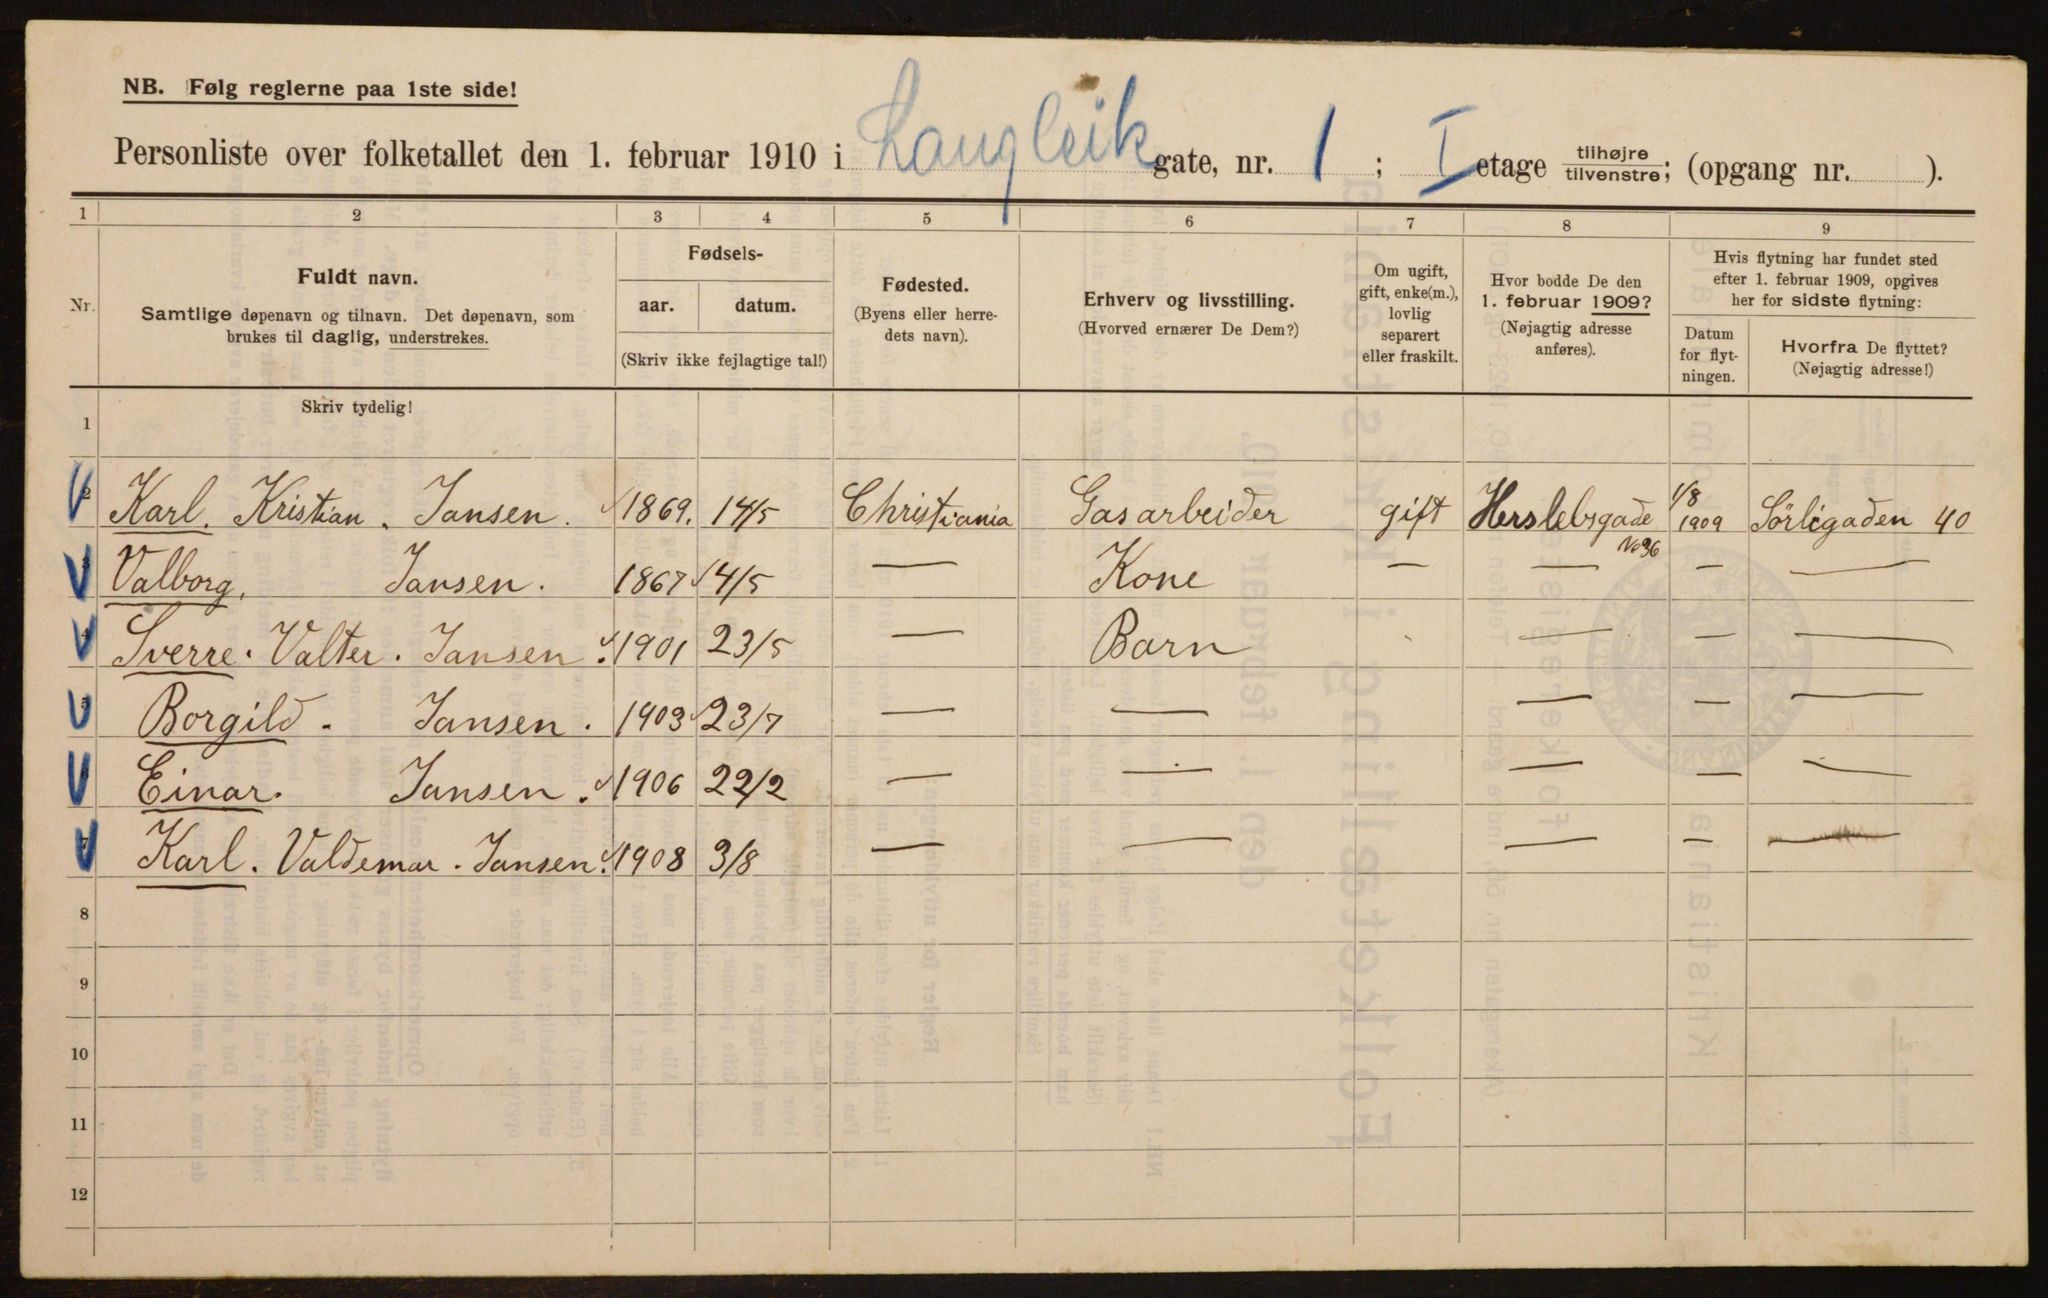 NB. Følg reglerne paa 1ste side!
Personliste over folketallet den 1. februar 1910 i Langleik gate, nr. 1; I etage tilhøjre tilvenstre; (opgang nr. ).
1 2 3 4 5 6 7 8 9
Nr.
Fuldt navn.
Samtlige døpenavn og tilnavn. Det døpenavn, som
brukes til daglig, understrekes.
Fødsels-
aar. datum.
(Skriv ikke fejlagtige tal!)
Fødested.
(Byens eller herre-
dets navn).
Erhverv og livsstilling.
(Hvorved ernærer De Dem?)
Om ugift,
gift, enke(m.),
lovlig
separert
eller fraskilt.
Hvor bodde De den
1. februar 1909?
(Nøjagtig adresse
anføres).
Hvis flytning har fundet sted
efter 1. februar 1909, opgives
her for sidste flytning:
Datum
for flyt-
ningen.
Hvorfra De flyttet?
(Nøjagtig adresse!)
Skriv tydelig!
1
2 Karl. Kristian. Jansen. 1869. 14/5 Christiania Gasarbeider gift Herslebsgade No 36 1/8 1909 Sörligaden 40
3 Valborg. Jansen. 1867 14/5 — Kone — — — —
4 Sverre. Valter. Jansen. 1901 23/5 — Barn — — —
5 Borgild. Jansen. 1903 23/7 — — — — —
6 Einar. Jansen. 1906 22/2 — — — — —
7 Karl. Valdemar. Jansen. 1908 3/8 — — — — —
8
9
10
11
12